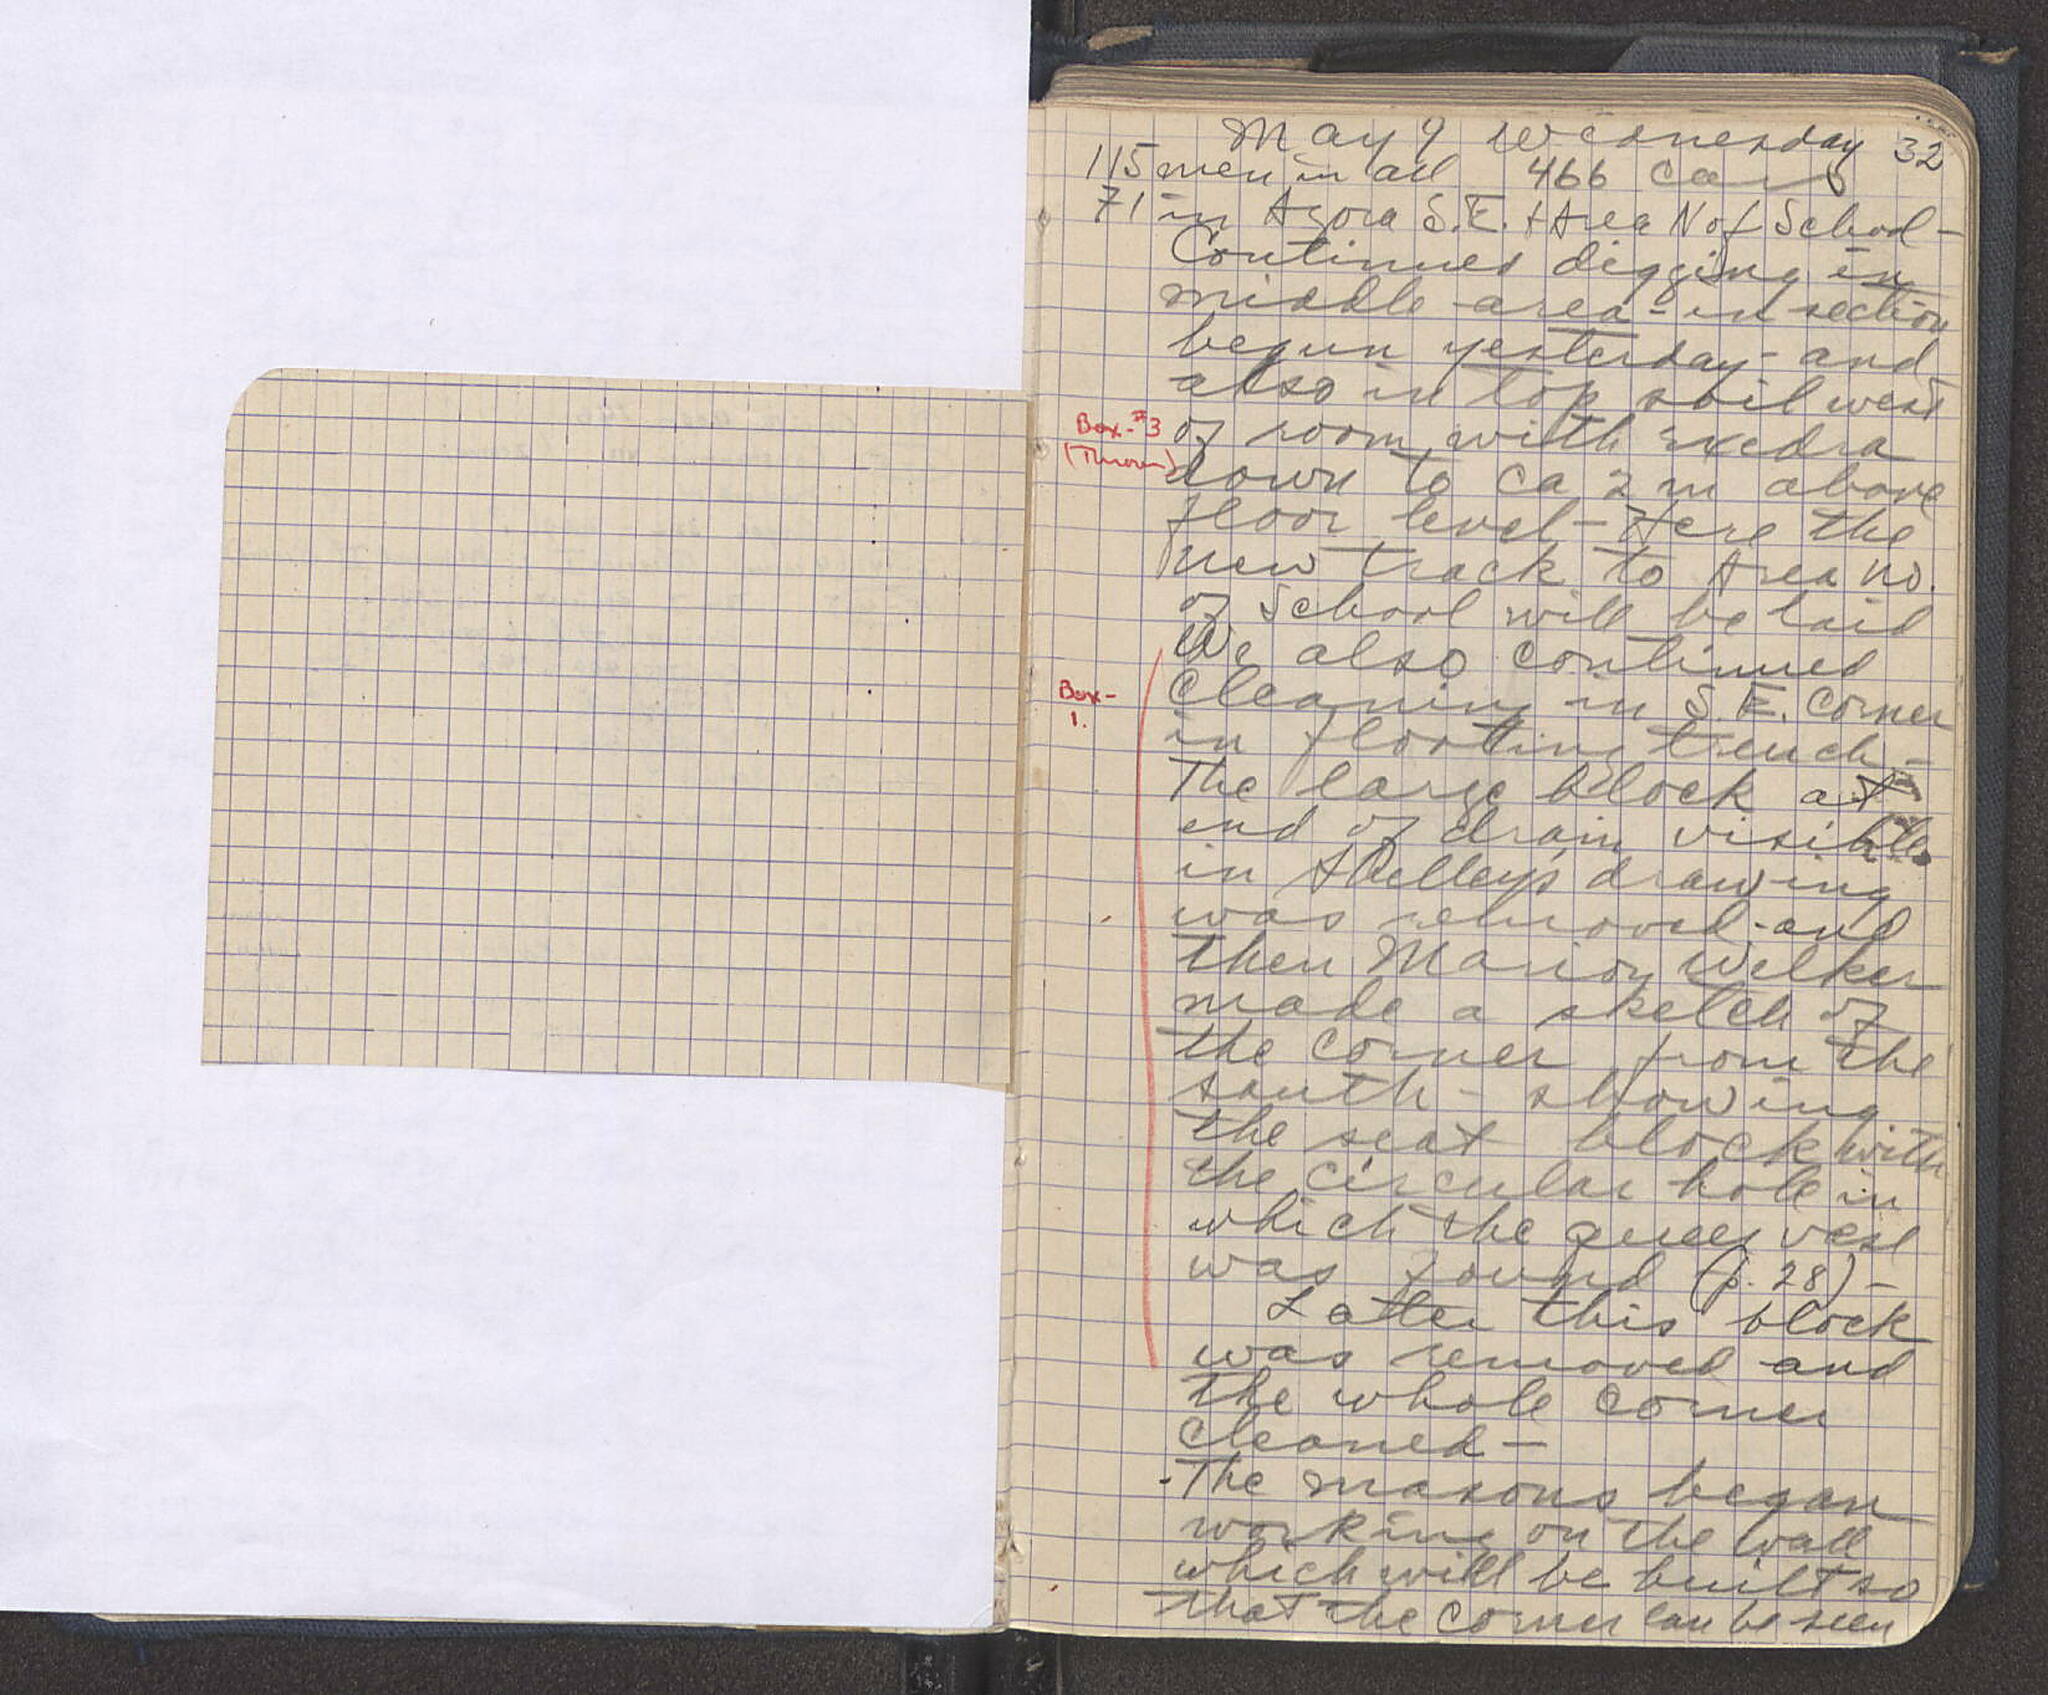 May 9 Wednesday 32
115 men in all 466 cars
71 in Agora S.E. + Area N of School -
Continued digging in
middle area - in section
begun yesterday - and
also in top soil west
Box - #3
(Thrown)
of room with exedra
down to ca 2 m above
floor level - Here the
new track to Area no.
of School will be laid
We also continued
Box -
1.
cleaning in S.E. corner
in flooting trench -
The large block at
end of drain visible
in Shelley's drawing
was removed - and
then Marion Welker
made a sketch of
the corner from the
south - showing
the seat block with
the circular hole in
which the queer vesl
was found (p. 28) -
Later this block
was removed and
the whole corner
cleaned -
The masons began
working on the wall
which will be built so
that the corner can be seen